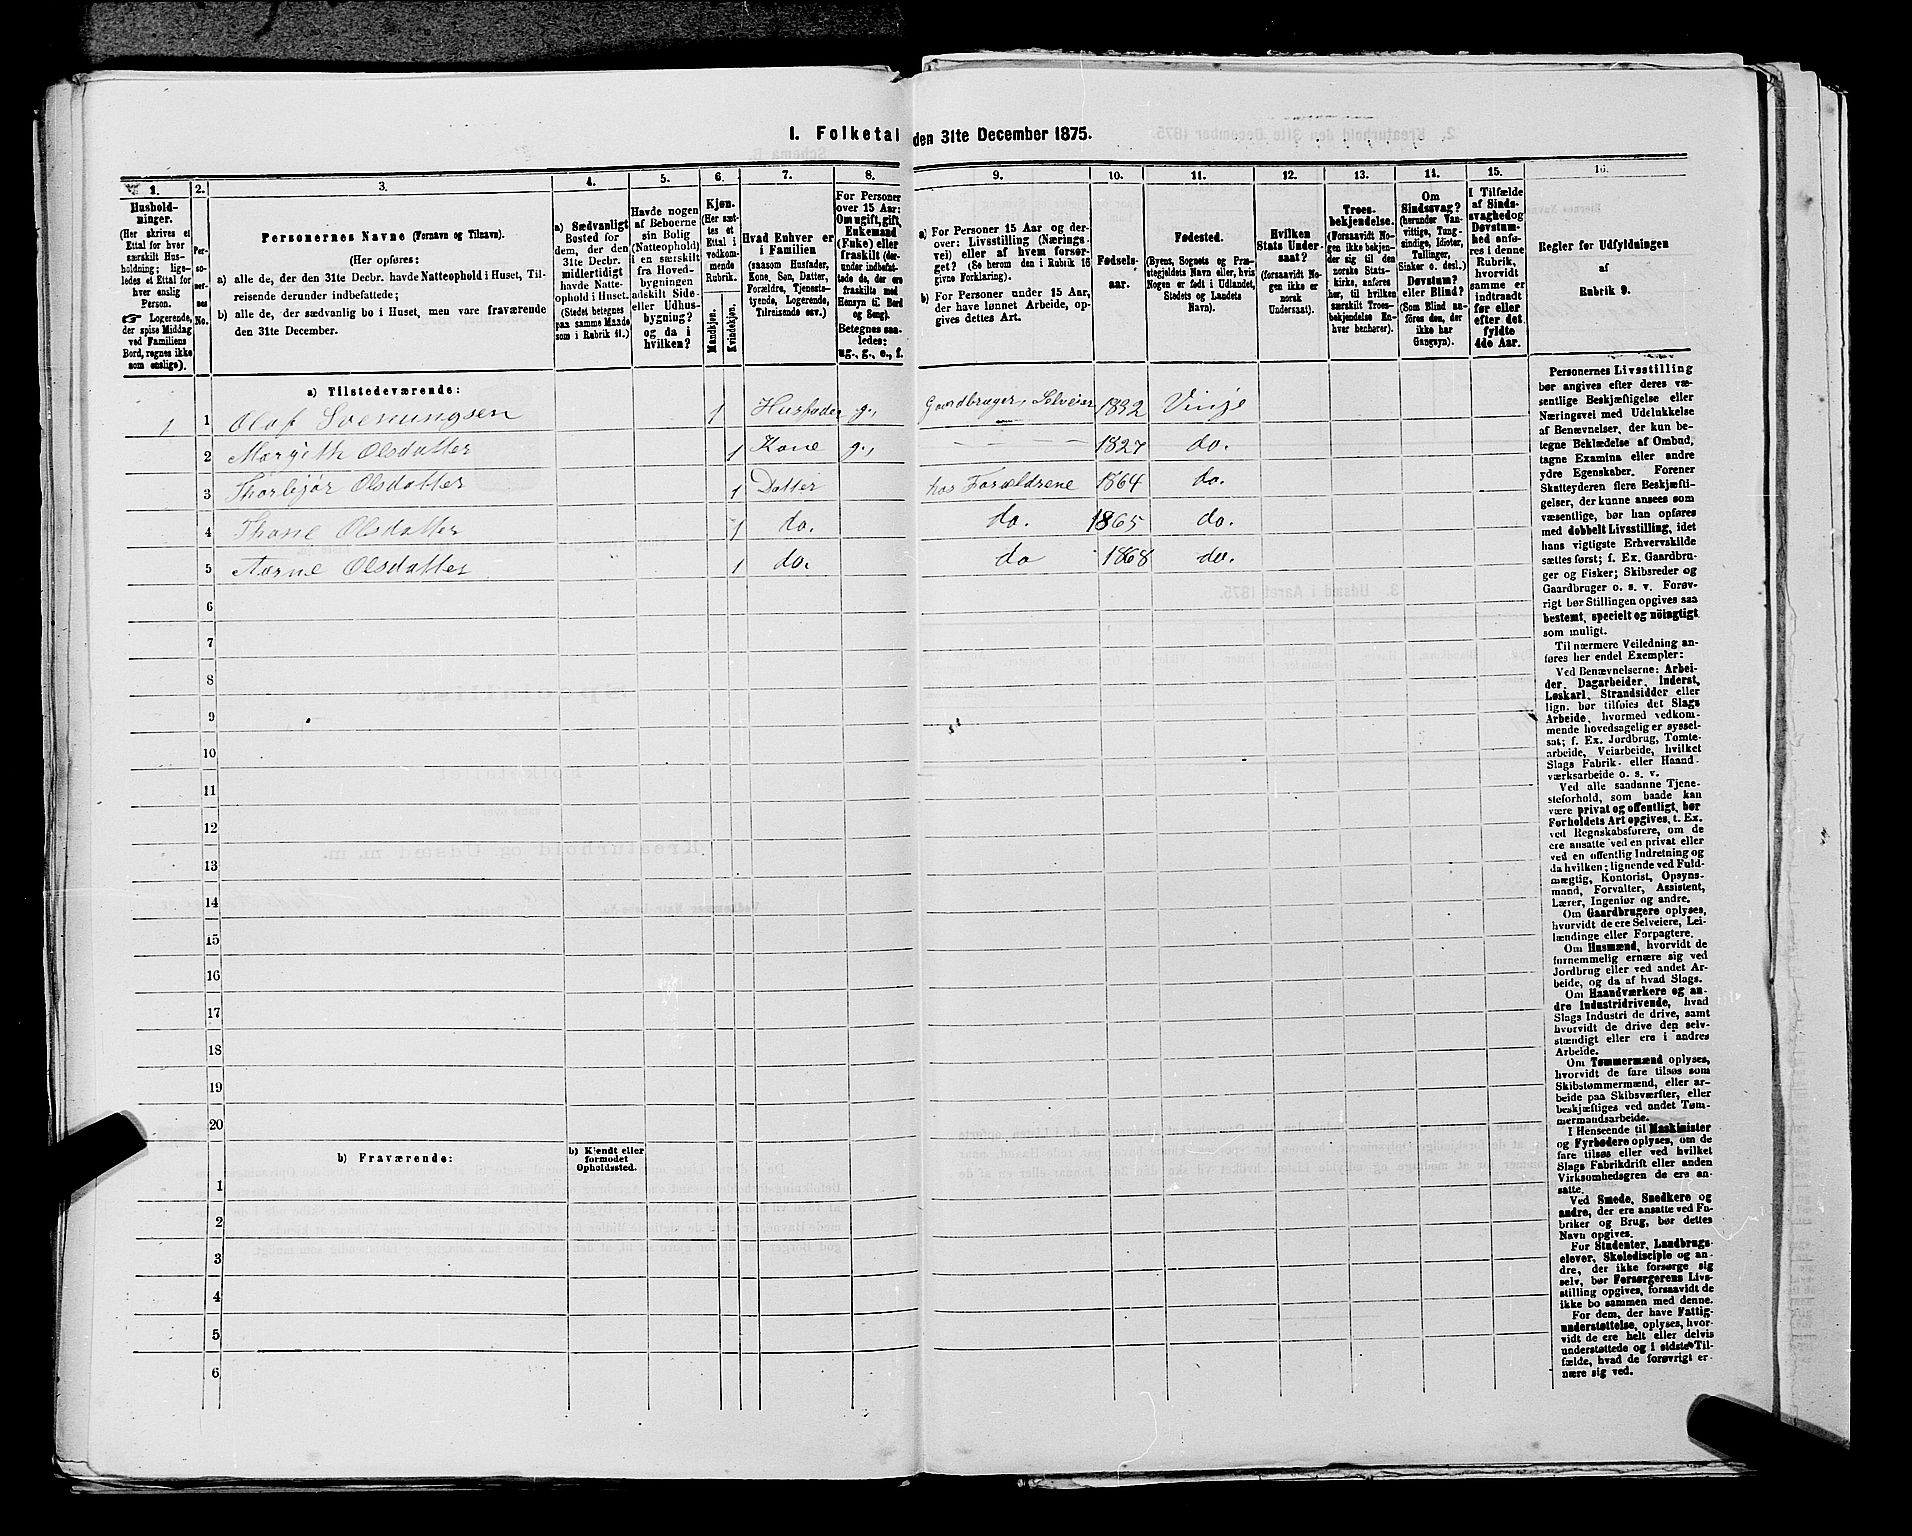 I. Folketal den 31te December 1875.
1. 2. 3. 4. 5. 6. 7. 8. 9. 10. 11. 12. 13. 14. 15. 16.
Hushold-
ninger.
(Her skrives et
Ettal for hver
særskilt Hus-
holdning; lige-
ledes et Ettal for
hver enslig
Person.
☞ Logerende,
der spise Middag
ved Familiens
Bord, regnes ikke
som enslige).
Per-
so-
ner-
nes
No.
Personernes Navne (Fornavn og Tilnavn).
(Her opføres:
a) alle de, der den 31te Decbr. havde Natteophold i Huset, Til-
reisende derunder indbefattede;
b) alle de, der sædvanlig bo i Huset, men vare fraværende
den 31te December.
a) Sædvanligt
Bosted for
dem, der den
31te Decbr.
midlertidigt
havde Natte-
ophold i Huset.
(Stedet betegnes
paa samme Maade
som i Rubrik 11.)
Havde nogen
af Beboerne
sin Bolig
(Natteophold)
i en særskilt
fra Hoved-
bygningen
adskilt Side-
eller Udhus-
bygning?
og da i
hvilken?
Kjøn.
(Her sæt-
tes et
Ettal i
vedkom-
mende
Rubrik.
Mandkjøn.
Kvindekjøn.
Hvad Enhver er
i Familien
(saasom Husfader,
Kone, Søn, Datter,
Forældre, Tjenest-
tyende, Logerende,
Tilreisende osv.)
For Personer
over 15 Aar:
Om ugift, gift,
Enkemand
(Enke) eller
fraskilt (der-
under indbefat-
tede de, der ere
fraskilte med
Hensyn til Bord
og Seng).
Betegnes saa-
ledes:
ug., g., e., f.
a) For Personer 15 Aar og der-
over: Livsstilling (Nærings-
vei) eller af hvem forsør-
get? (Se herom den i Rubrik 16
givne Forklaring.)
b) For Personer under 15 Aar,
der have lønnet Arbeide, op-
gives dettes Art.
Fødsels-
aar.
Fødested.
(Byens, Sognets og Præ-
stegjeldets Navn eller, hvis
Nogen er født i Udlandet,
Stedets og Landets
Navn).
Hvilken
Stats Under-
saat?
(forsaavidt No-
gen ikke er
norsk
Undersaat).
Troes-
bekjendelse.
(Forsaavidt No-
gen ikke bekjen-
der sig til den
norske Stats-
kirke, anføres
her, til hvilken
særskilt Troes-
bekjendelse En-
hver henhører).
Om
Sindssvag?
(herunder Van-
vittige, Tung-
sindige, Idioter,
Tullinger,
Sinker o. desl.)
Døvstum?
eller Blind?
(Som Blind an-
føres den, der
ikke har
Gangsyn).
I Tilfælde
af Sinds-
svaghed og
Døvstum-
hed anfø-
res i denne
Rubrik,
hvorvidt
samme er
indtraadt
før eller
efter det
fyldte
4de Aar.
Regler for Udfyldningen
af
Rubrik 9.
a) Tilstedeværende:
1 1 Olaf Svenungsen 1 Husfader g., Gaardbruger, Selveier 1832 Vinje
2 Margith Olsdatter 1 Kone g., — — — 1827 do.
3 Thorbjør Olsdatter 1 Datter hos Forældrene 1864 do.
4 Thone Olsdatter 1 do. do. 1865 do.
5 Aarne Olsdatter 1 do. do 1868 do.
6
7
8
9
10
11
12
13
14
15
16
17
18
19
20
b) Fraværende:
b) Kjendt eller
formodet
Opholdssted.
1
2
3
4
5
6
Personernes Livsstilling
bør angives efter deres væ-
sentlige Beskjæftigelse eller
Næringsvei med Udelukkelse
af Benævnelser, der kun be-
tegne Beklædelse af Ombud,
tagne Examina eller andre
ydre Egenskaber. Forener
Skatteyderen flere Beskjæfti-
gelser, der kunne ansees som
væsentlige, bør han opføres
med dobbelt Livsstilling, idet
hans vigtigste Erhvervskilde
sættes først; f. Ex. Gaardbru-
ger og Fisker; Skibsreder og
Gaardbruger o. s. v. Forøv-
rigt bør Stillingen opgives saa
bestemt, specielt og nöiagtigt
som muligt.
Til nærmere Veiledning an-
føres her endel Exempler:
Ved Benævnelserne: Arbei-
der, Dagarbeider, Inderst,
Løskarl, Strandsidder eller
lign. bør tilføies det Slags
Arbeide, hvormed vedkom-
mende hovedsagelig er syssel-
sat; f. Ex. Jordbrug, Tomte-
arbeide, Veiarbeide, hvilket
Slags Fabrik- eller Haand-
værksarbeide o. s. v.
Ved alle saadanne Tjene-
steforhold, som baade kan
være privat og offentligt, bør
Forholdets Art opgives, t. Ex.
ved Regnskabsførere, om de
ere ansatte ved en privat eller
ved en offentlig Indretning og
da hvilken; lignende ved Fuld-
mægtig, Kontorist, Opsyns-
mand, Forvalter, Assistent,
Lærer, Ingeniør og andre.
Om Gaardbrugere oplyses,
hvorvidt de ere Selveiere, Lei-
lændinge eller Forpagtere.
Om Husmænd, hvorvidt de
fornemmelig ernære sig ved
Jordbrug eller ved andet Ar-
beide, og da af hvad Slags.
Om Haandværkere og an-
dre Industridrivende, hvad
Slags Industri de drive, samt
hvorvidt de drive den selv-
stændigt eller ere i andres
Arbeide.
Om Tømmermænd oplyses,
hvorvidt de fare tilsøs som
Skibstømmermænd, eller ar-
beide paa Skibsværfter, eller
beskjæftiges ved andet Tøm-
mermandsarbeide.
I Henseende til Maskinister
og Fyrbødere oplyses, om de
fare tilsøs eller ved hvilket
Slags Fabrikdrift eller anden
Virksomhedsgren de ere an-
satte.
Ved Smede, Snedkere og
andre, der ere ansatte ved Fa-
briker og Brug, bør dettes
Navn opgives.
For Studenter, Landbrugs-
elever, Skoledisciple og an-
dre, der ikke forsørge sig
selv, bør Forsørgerens Livs-
stilling opgives, forsaavidt de
ikke bo sammen med denne.
For dem, der have Fattig-
understøttelse, oplyses, hvor-
vidt de ere helt eller delvis
understøttede og i sidste Til-
fælde, hvad de forøvrigt er-
nære sig ved.